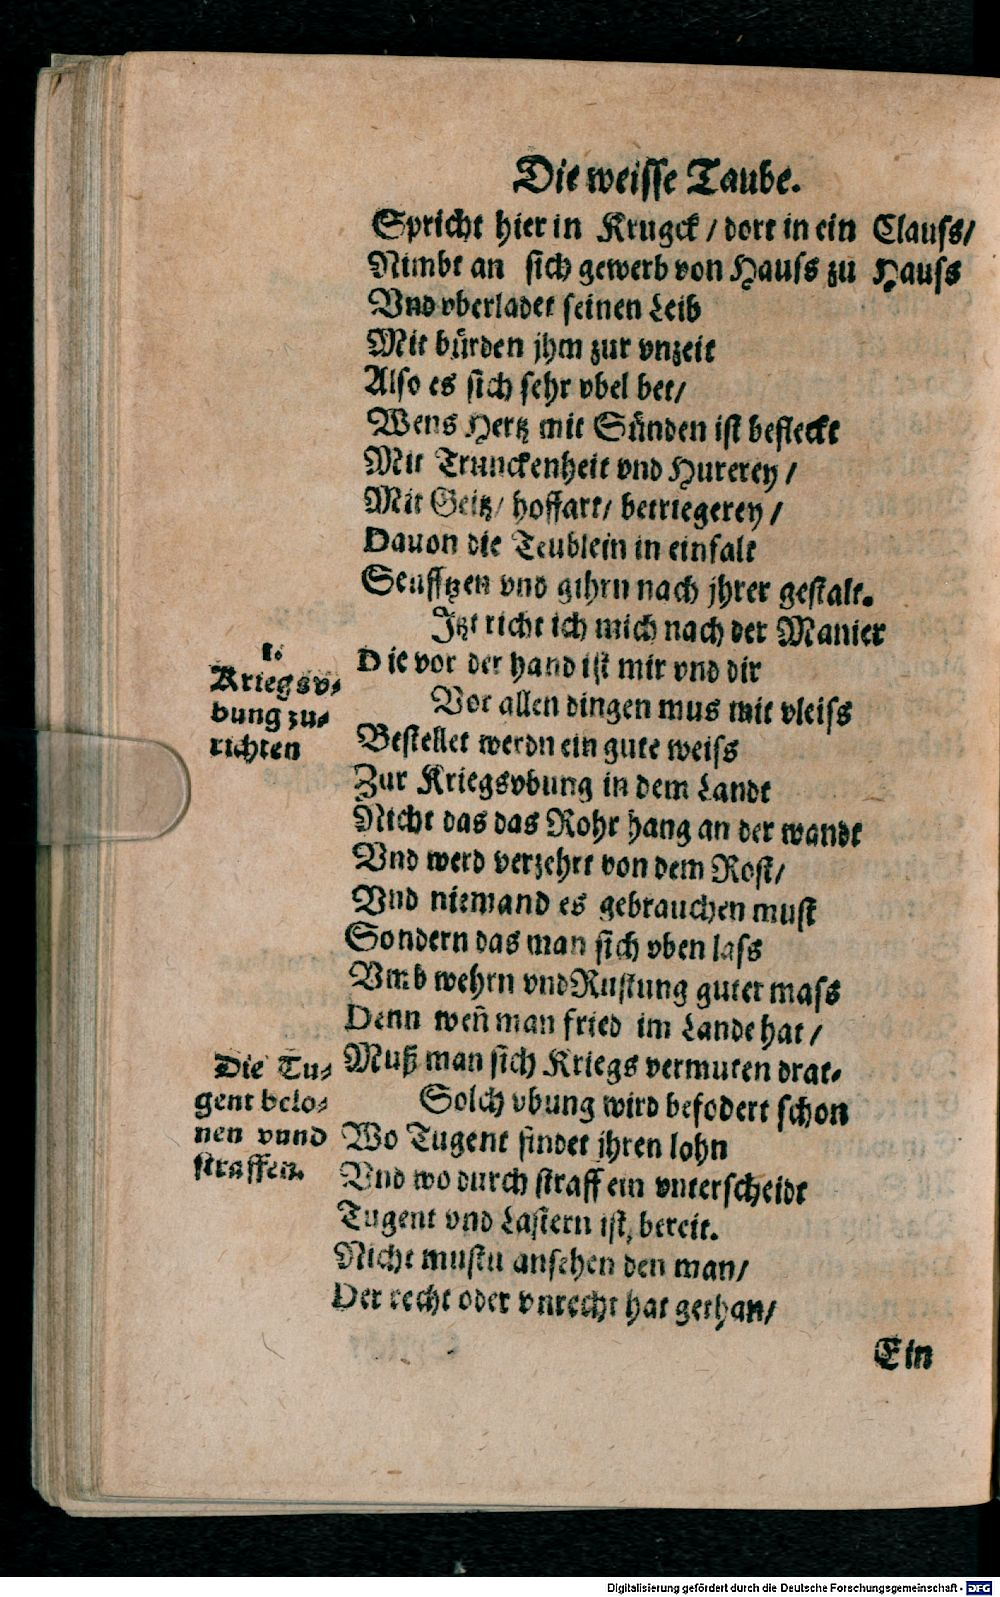 Die weisse Taube.
Spricht hier in Krugck / dort in ein Clauss/
Nimbt an sich gewerb von Hauss zu Hauss
Vnd vberladet seinen Leib
Mit bürden jhm zur vnzeit
Also es sich sehr vbel bet/
Wens Hertz mit Sünden ist befleckt
Mit Trunckenheit vnd Hurerey /
Mit Geitz/ hoffart/ betriegerey /
Dauon die Teublein in einfalt
Seufftzen vnd gihrn nach jhrer gestalt.
Jtzt richt ich mich nach der Manier
Die vor der hand ist mir vnd dir
Vor allen dingen mus mit vleiss
Bestellet werdn ein gute weiss
Zur Kriegsvbung in dem Landt
Nicht das das Rohr hang an der wandt
Vnd werd verzehrt von dem Rost/
Vnd niemand es gebrauchen must
Sondern das man sich vben lass
Vmb wehrn vnd Rustung guter mass
Denn weñ man fried im Lande hat /
Muß man sich Kriegs vermuten drat.
Solch vbung wird befodert schon
Wo Tugent findet jhren lohn
Vnd wo durch straff ein vnterscheidt
Tugent vnd Lastern ist, bereit.
Nicht mustu ansehen den man/
Der recht oder vnrecht hat gethan/
Ein
1.
Kriegsv-
bung zu-
richten
Die Tu-
gent belo-
nen vnnd
straffen.
Digitalisierung gefördert durch die Deutsche Forschungsgemeinschaft - DFG